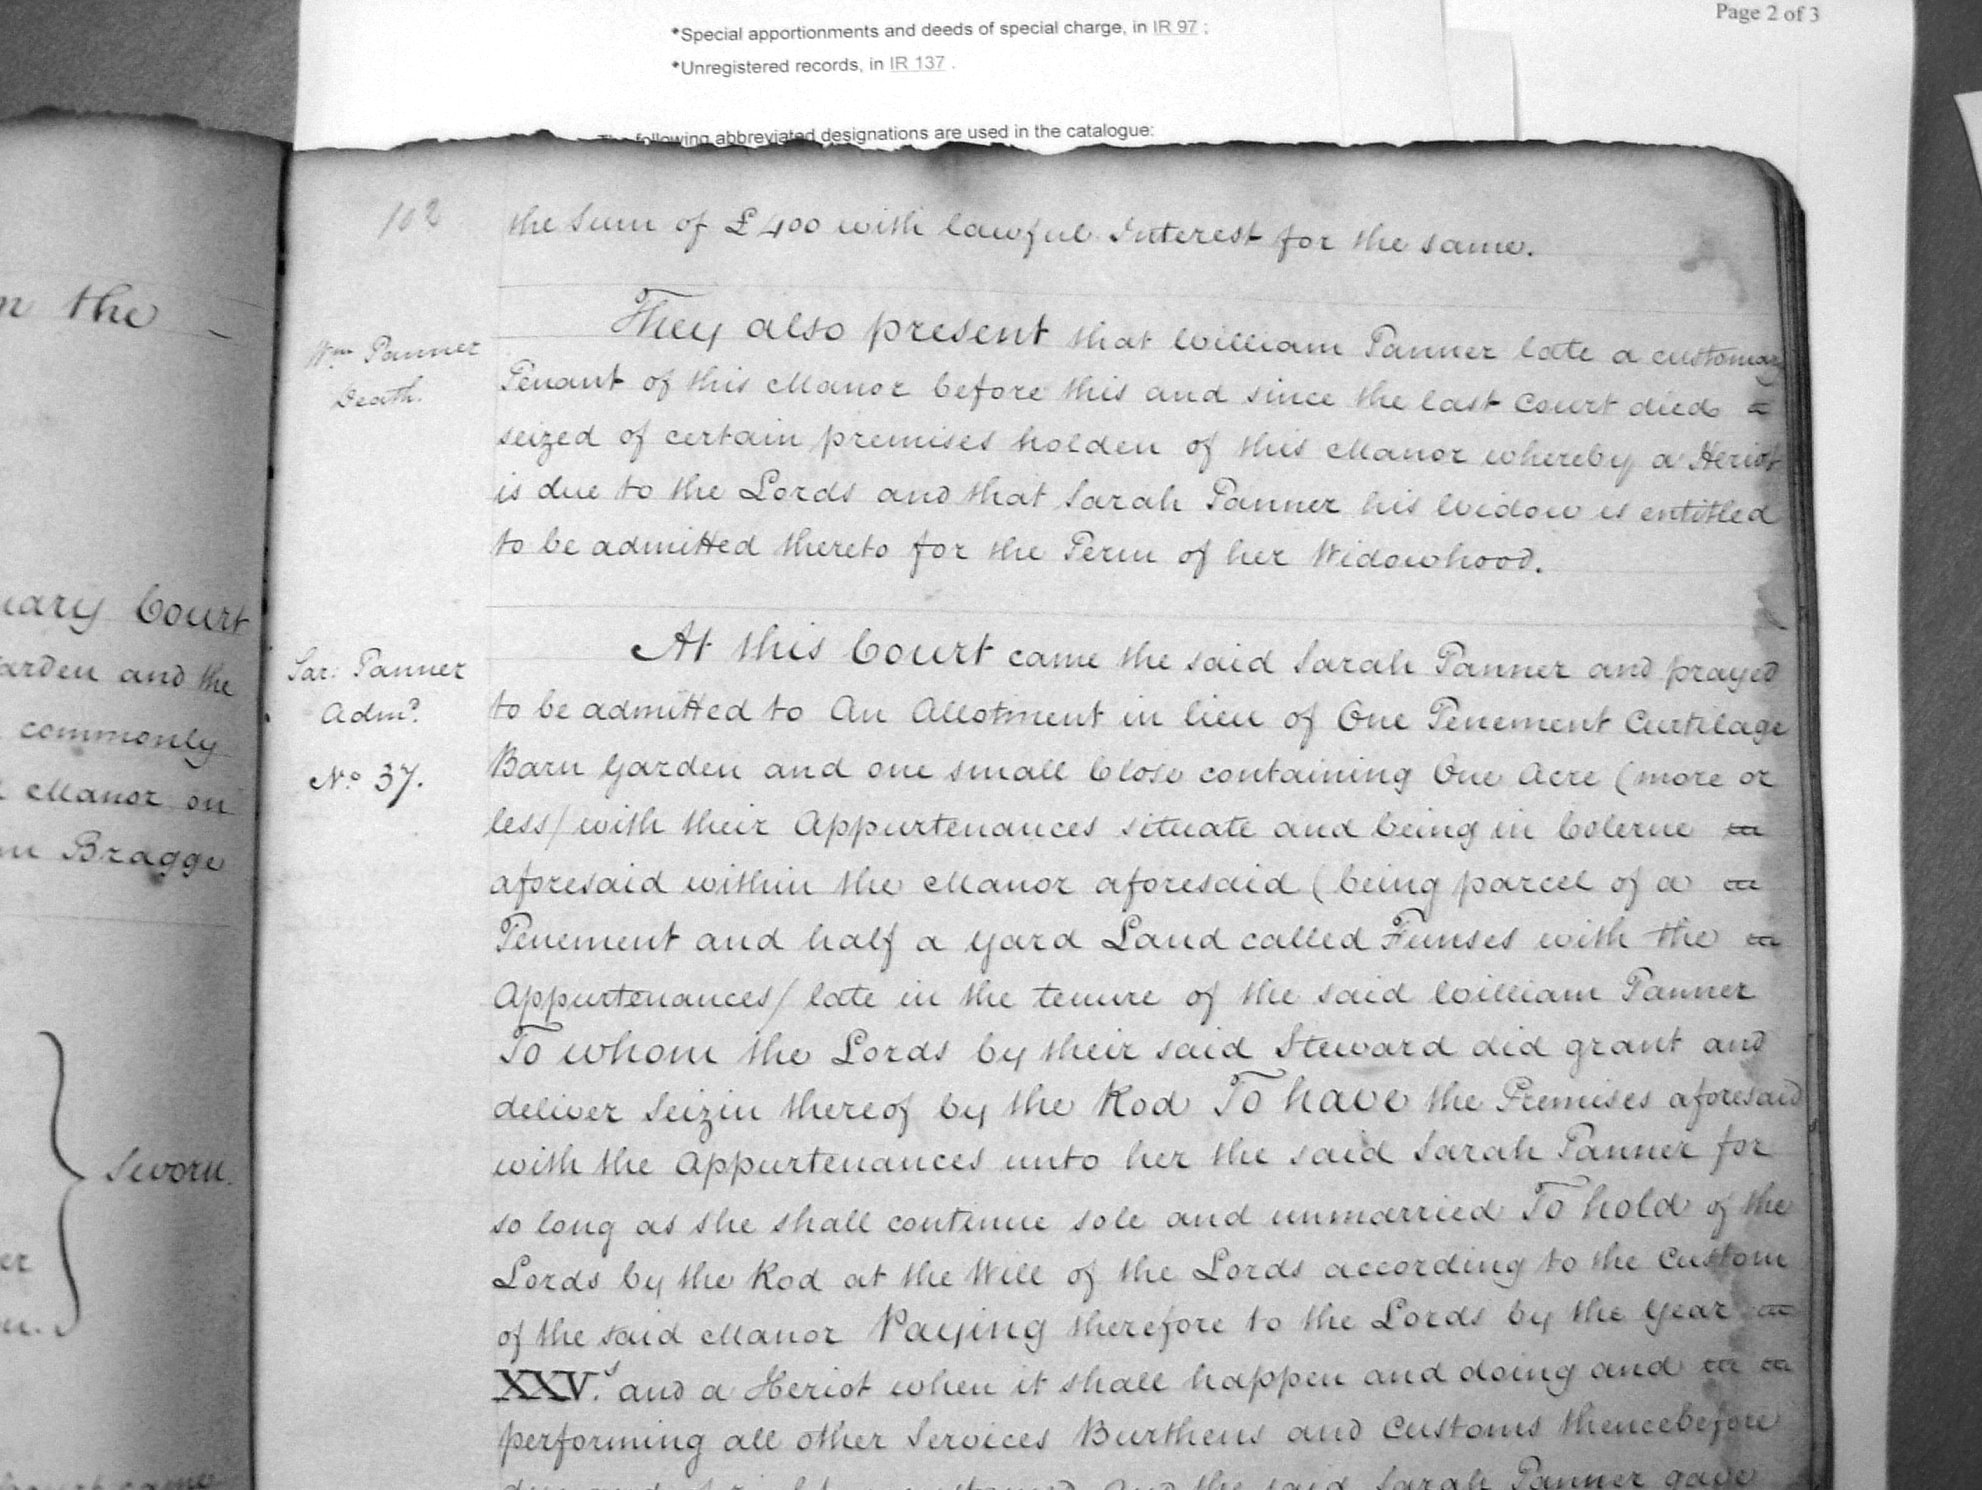 Page 2 of 3
*Special apportionments and deeds of special charge, in IR 97 ;
*Unregistered records, in IR 137 .
following abbreviated designations are used in the catalogue:
102
the Sum of £400 with lawful Interest for the same.
Wm Panner
Death.
They also present that William Panner late a customary
Tenant of this Manor before this and since the last Court died
seized of certain premises holden of this Manor whereby a Heriot
is due to the Lords and that Sarah Panner his Widow is entitled
to be admitted thereto for the Term of her Widowhood.
Sar: Panner
Admd.
No 37.
At this Court came the said Sarah Panner and prayed
to be admitted to An Allotment in lieu of One Tenement Curtilage
Barn Garden and one small Close containing One Acre (more or
less/ with their Appurtenances situate and being in Colerne
aforesaid within the Manor aforesaid (being parcel of a
Tenement and half a yard Land called Funses with the
Appurtenances/ late in the tenure of the said William Panner
To whom the Lords by their said Steward did grant and
deliver Seizin thereof by the Rod To have the Premises aforesaid
with the Appurtenances unto her the said Sarah Panner for
so long as she shall continue sole and unmarried To hold of the
Lords by the Rod at the Will of the Lords according to the Custom
of the said Manor Paying therefore to the Lords by the Year
XXV.s and a Heriot when it shall happen and doing and
performing all other Services Burthens and Customs thencebefore
and the said Sarah Panner gave
the
Court
and the
commonly
Manor on
Bragge
Sworn.
came